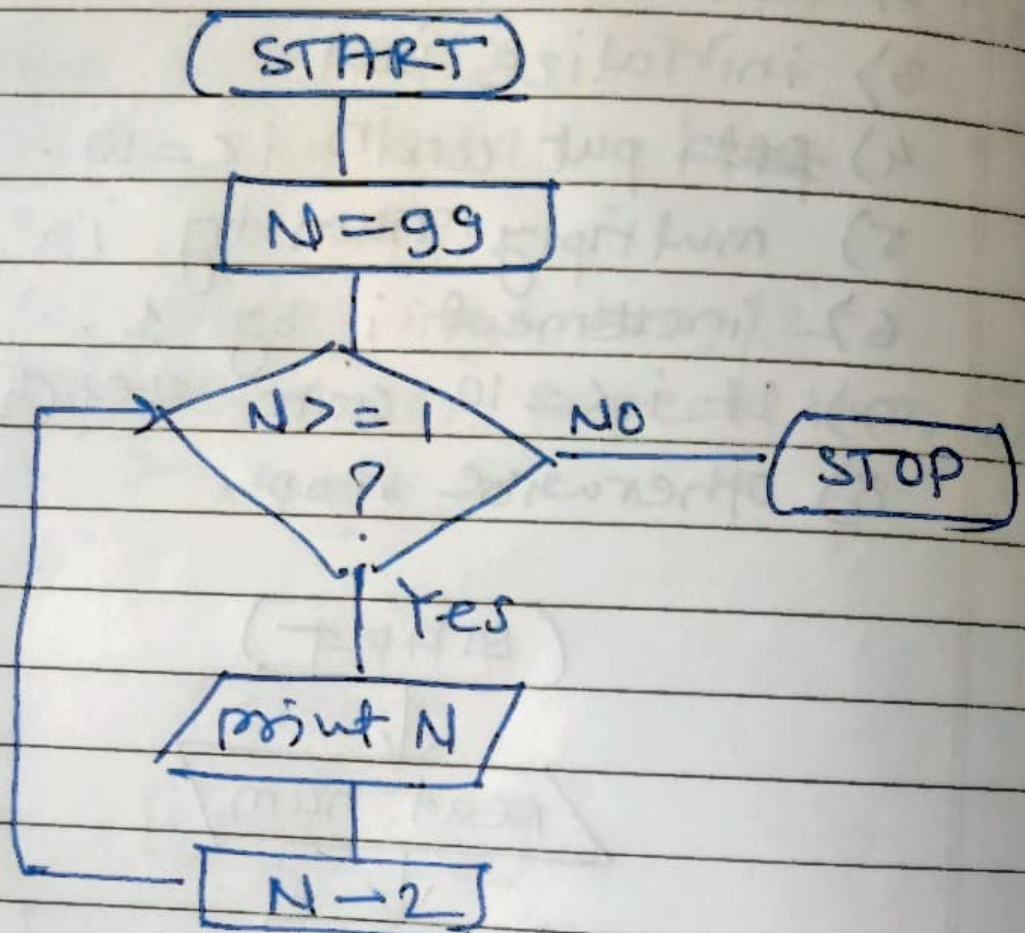 START
N=99
N>=1
?
NO
STOP
Yes
print N
N-2